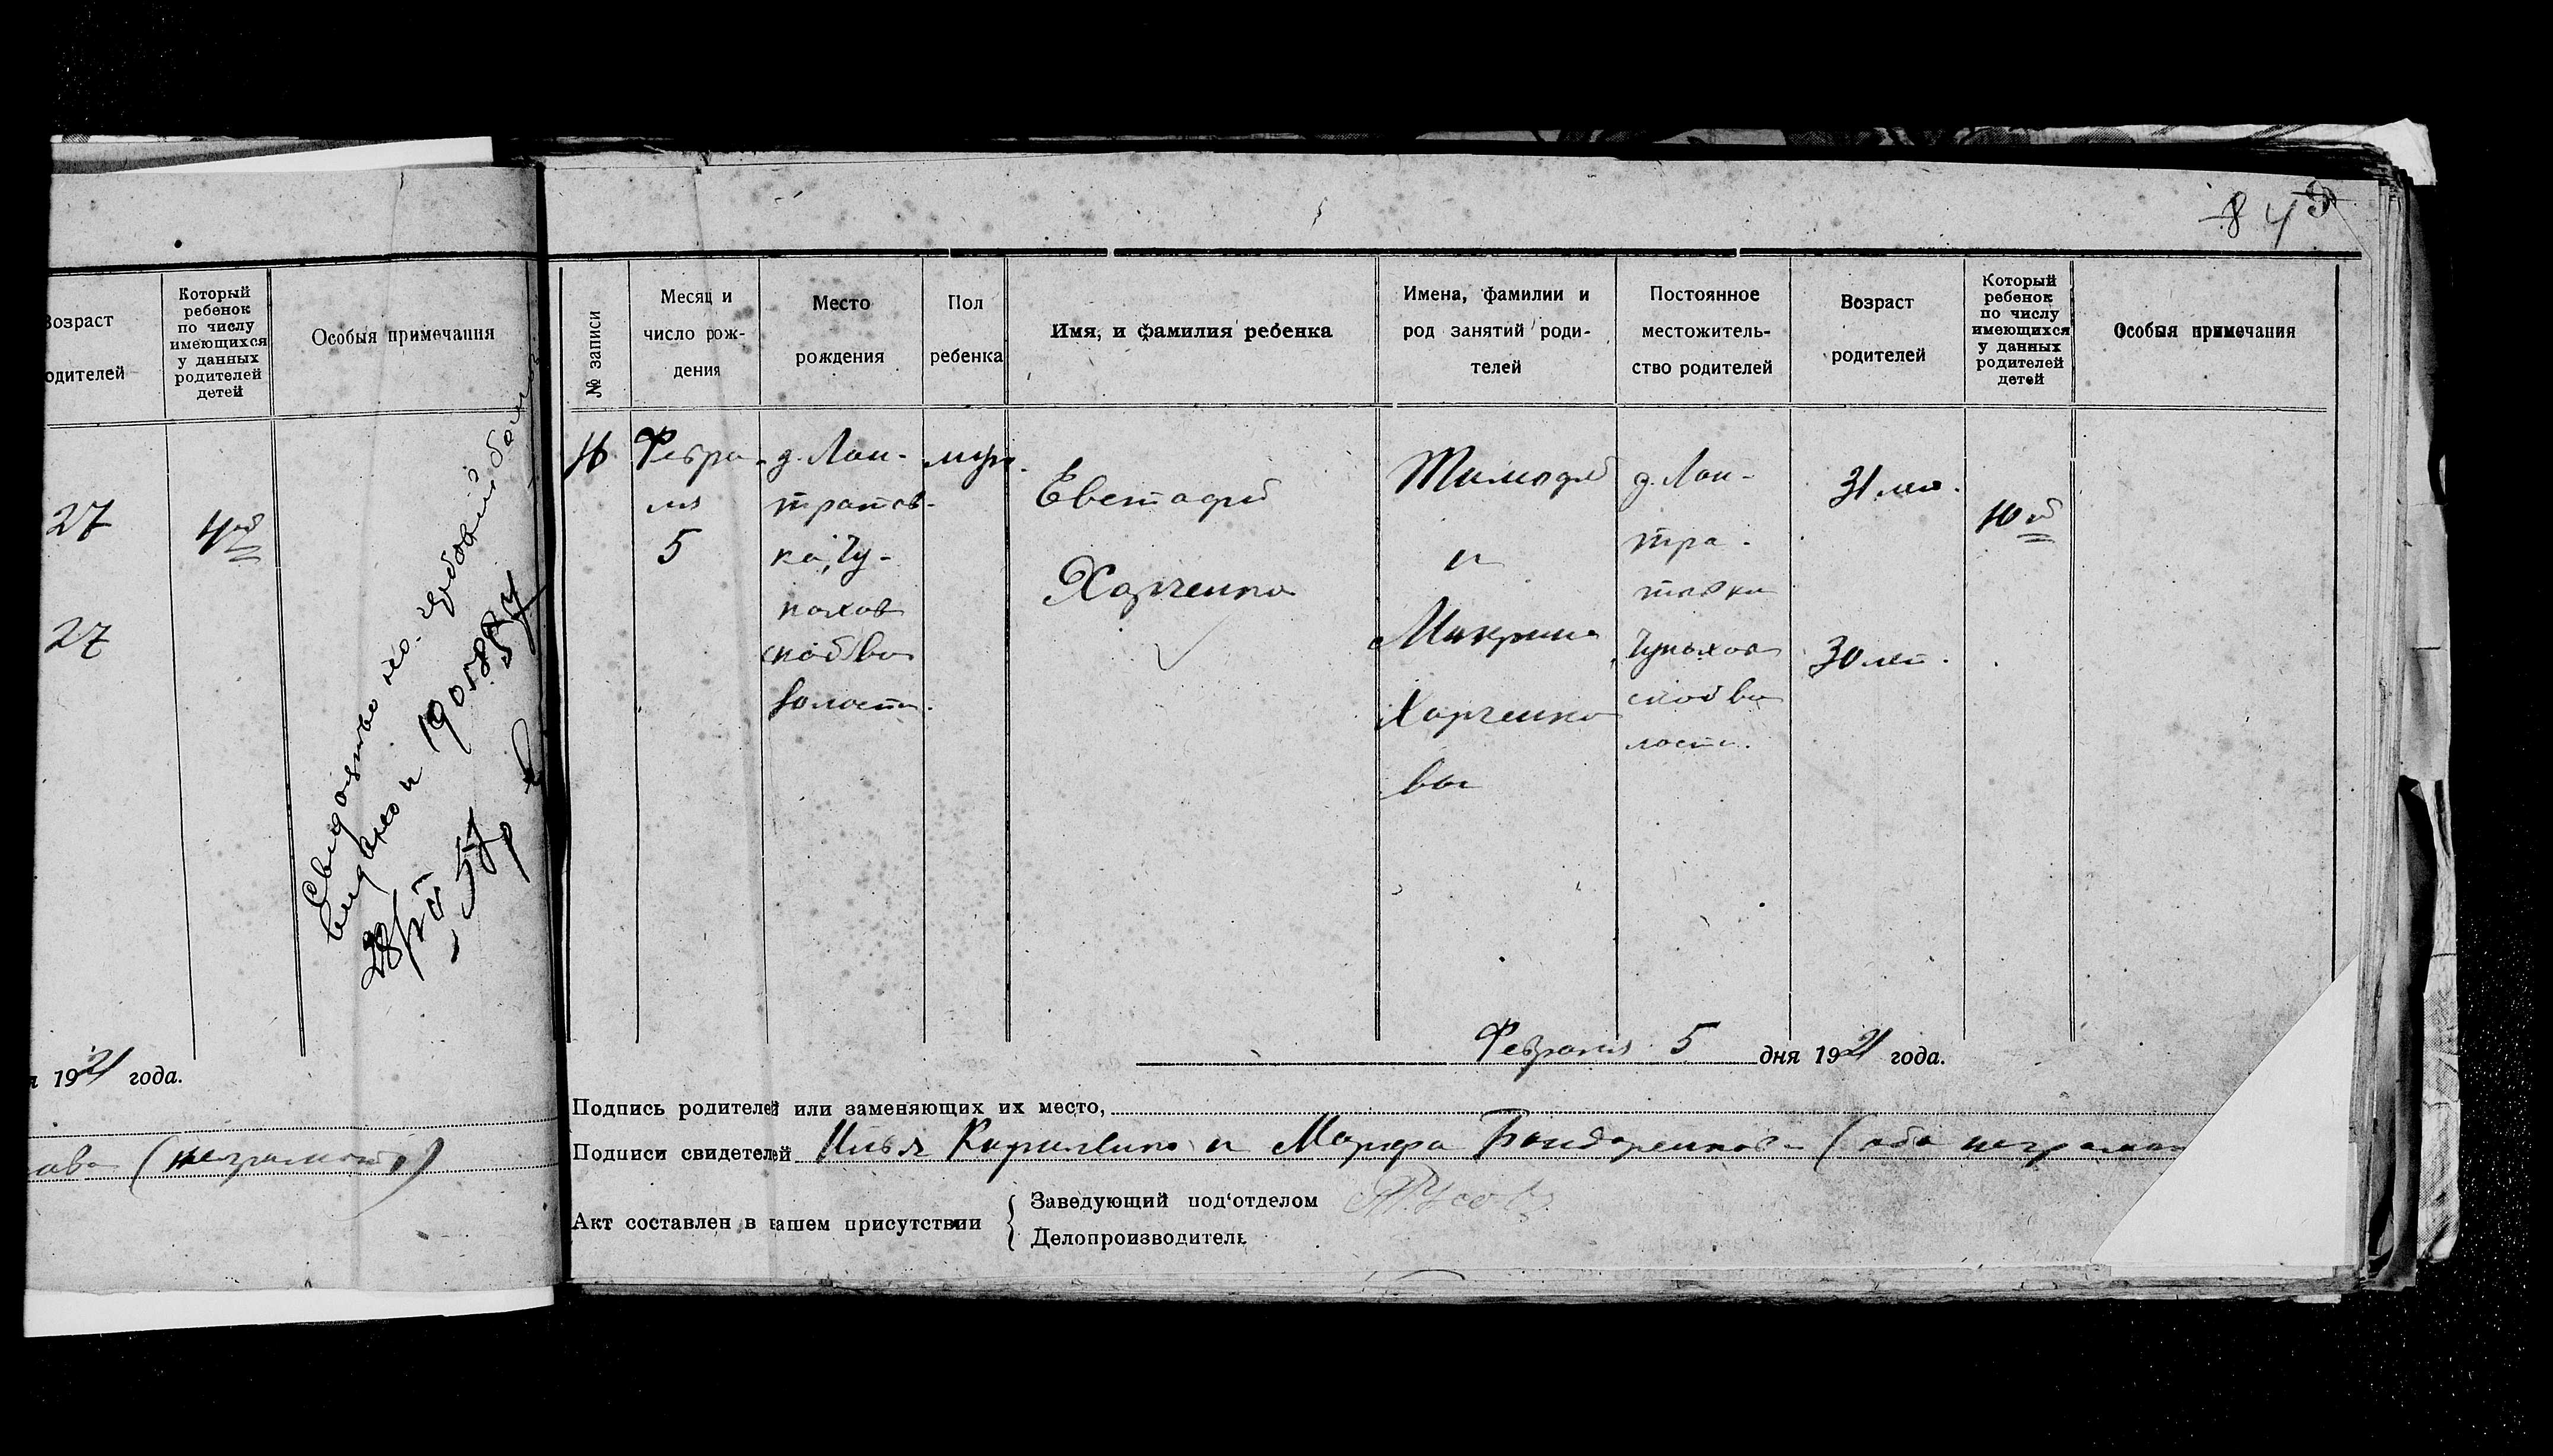 Возраст
родителей
Который
ребенок
по числу
имеющихся
у данных
родителей
детей
Особыя примечания
27
4ый
27
Свидетельство
выдано
28/VI 57 г
я 1921 года.
ава (неграмотн)
84
№ записи
Месяц и
число рож-
дения
Место
рождения
Пол
ребенка
Имя, и фамилия ребенка
Имена, фамилии и
род занятий роди-
телей
Постоянное
местожитель-
ство родителей
Возраст
родителей
Который
ребенок
по числу
имеющихся
у данных
родителей
детей
Особыя примечания
16
Февра-
ля
5
д. Лан-
тратов-
ка, Чу-
пахов
ской во
волости.
муж.
Евстафий
Харченко
Тимофей
и
Макрина
Харченко
вы
д. Лан-
тра-
товки
Чупахов
ской во
лости.
31 лет.
30 лет.
10ый
Февраля 5 дня 1921 года.
Подпись родителей или заменяющих их место,
Подписи свидетелей Илья и Марфа Бондаренкова (оба неграмот
Акт составлен в нашем присутствии
Заведующий под‘отделом
Делопроизводитель